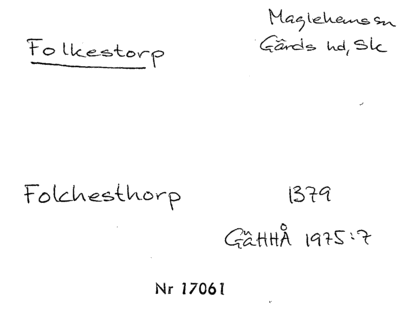 Maglehems sn
Folkestorp Gärds hd, Sk
Folchesthorp 1379
GäHHÅ 1975:7
Nr 17061